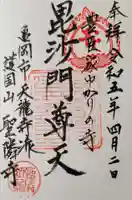 奉拝 令和五年四月二日
豊臣秀吉ゆかりの寺
毘沙門尊天
亀岡市 天龍寺派
護国山 聖隣寺